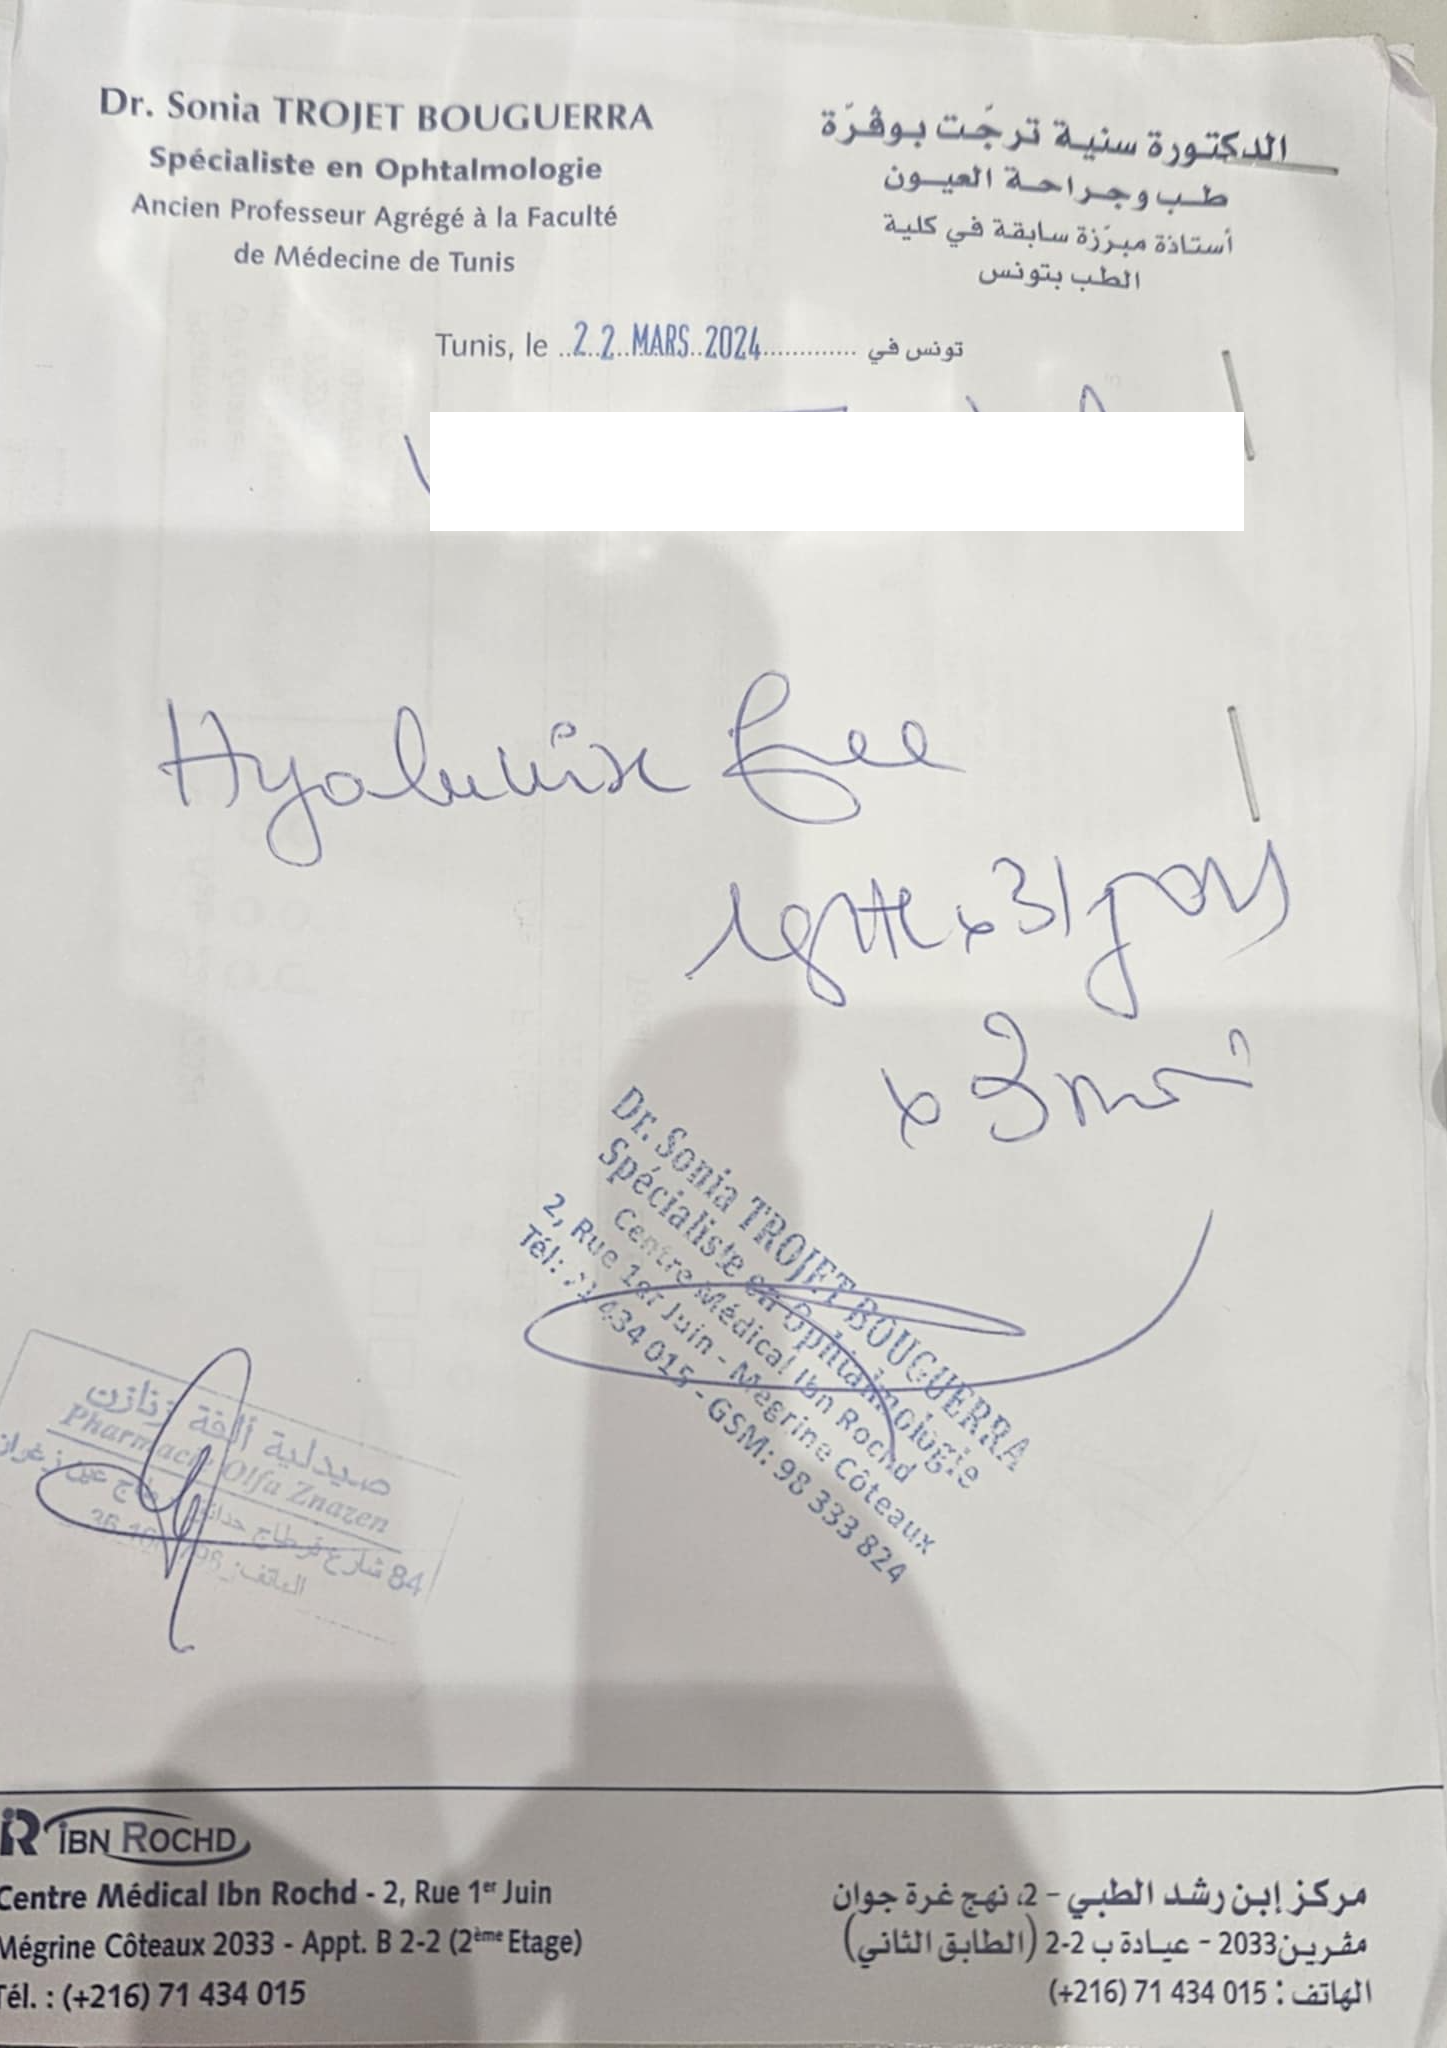 Dr. Sonia TROJET BOUGUERRA
Spécialiste en Ophtalmologie
Ancien Professeur Agrégé à la Faculté
de Médecine de Tunis
الدكتورة سنية ترجَت بوڤرّة
طب وجراحة العيون
أستاذة مبرّزة سابقة في كلية
الطب بتونس
Tunis, le ..22..MARS..2024............. تونس في
Hyalunix free
1gtte x 3/jours
x 3 mois
Dr. Sonia TROJET BOUGUERRA
Spécialiste en Ophtalmologie
Centre Médical Ibn Rochd
2, Rue 1er Juin - Mégrine Côteaux
Tél: 71 434 015 - GSM: 98 333 824
صيدلية ألفة زنازن
Pharmacie Olfa Znazen
84 شارع قرطاج حدائق عين زغوان
الهاتف:
IBN ROCHD
Centre Médical Ibn Rochd - 2, Rue 1er Juin
Mégrine Côteaux 2033 - Appt. B 2-2 (2ème Etage)
Tél. : (+216) 71 434 015
مركز إبن رشد الطبي - 2، نهج غرة جوان
مڤرين 2033 - عيادة ب 2-2 (الطابق الثاني)
الهاتف : 015 434 71 (216+)